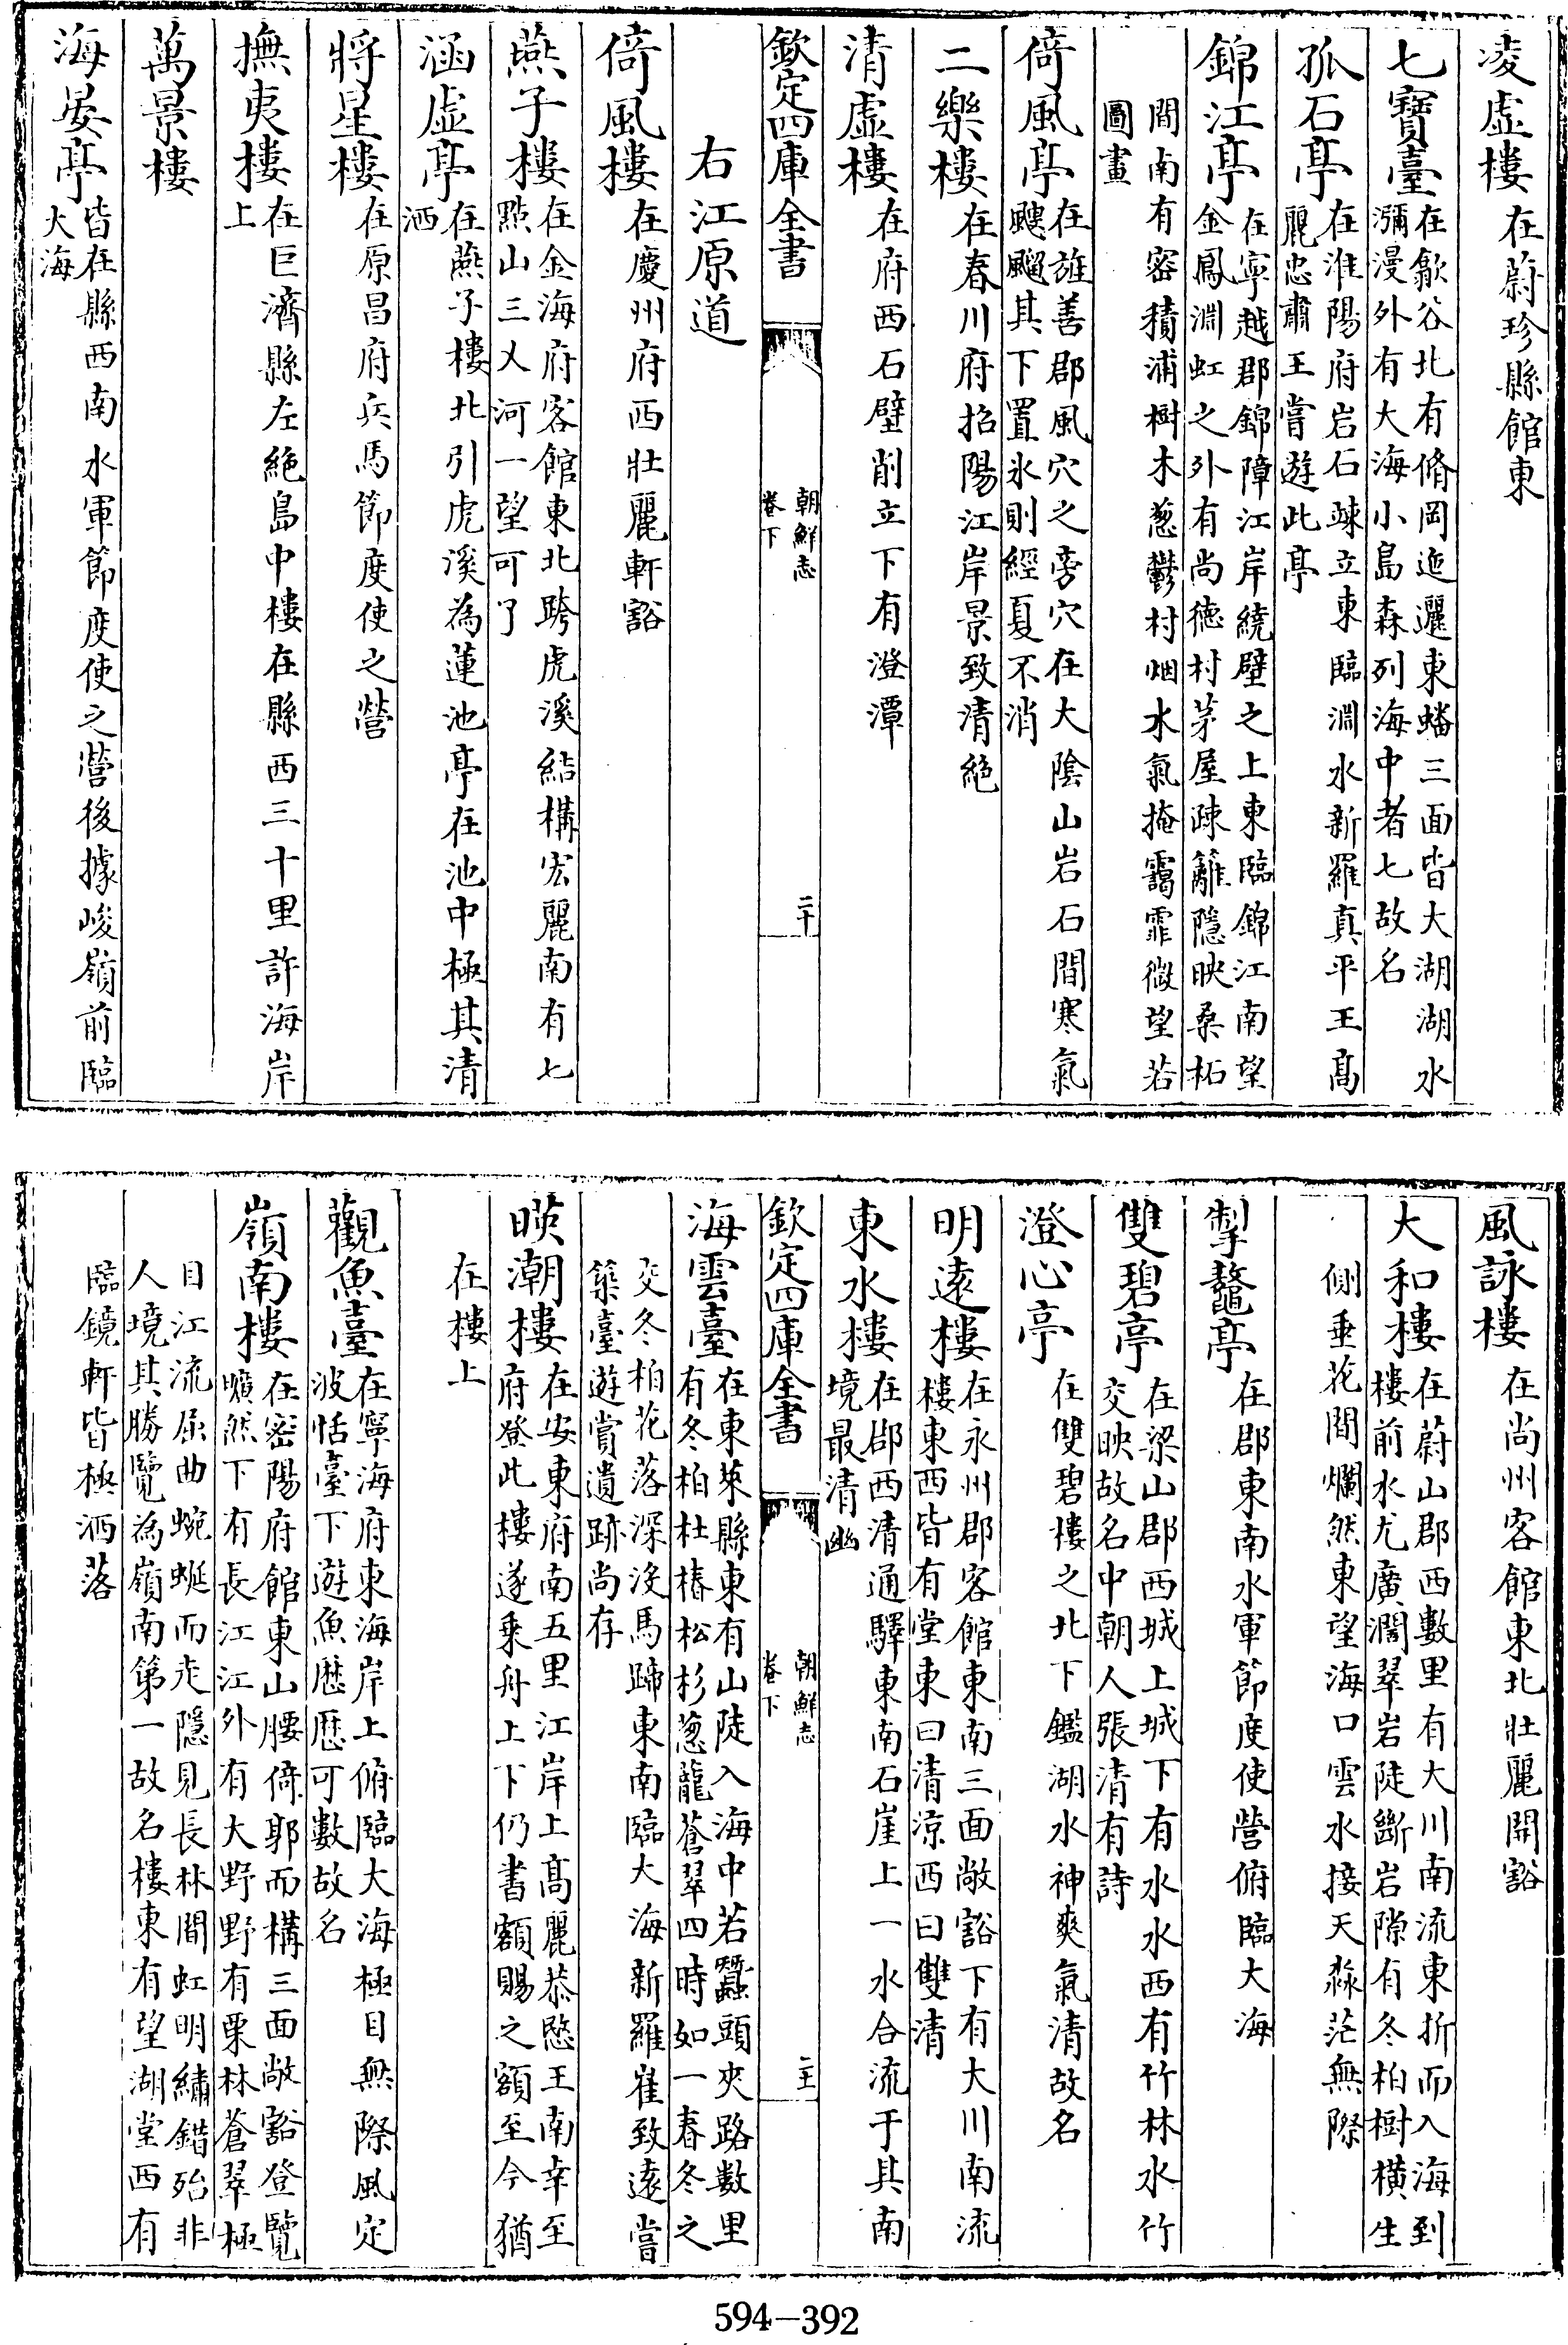 凌虚樓在蔚珍縣館東
七寳臺在歙谷北有脩岡迤邐東蟠三面皆大湖湖水瀰漫外有大海小島森列海中者七故名
孤石亭在淮陽府岩石竦立東臨淵水新羅真平王髙麗忠肅王嘗遊此亭
錦江亭在寧越郡錦障江岸繞壁之上東臨錦江南望金鳳淵虹之外有尚徳村茅屋疎籬隱映桑柘
間南有宻積浦樹木葱鬱村烟水氣掩靄霏微望若圖畫
倚風亭在旌善郡風穴之旁穴在大陰山岩石間寒氣颼飀其下置氷則經夏不消
二樂樓在春川府招陽江岸景致清絶
清虚樓在府西石壁削立下有澄潭
欽定四庫全書
朝鮮志
卷下
二十
右江原道
倚風樓在慶州府西壯麗軒豁
燕子樓在金海府客館東北跨虎溪結構宏麗南有七點山三乂河一望可了
涵虚亭在燕子樓北引虎溪為蓮池亭在池中極其清洒
將星樓在原昌府兵馬節度使之營
撫夷樓在巨濟縣左絶島中樓在縣西三十里許海岸上
萬景樓
海晏亭皆在縣西南水軍節度使之營後據峻嶺前臨大海
風詠樓在尚州客館東北壯麗開豁
大和樓在蔚山郡西數里有大川南流東折而入海到樓前水尤廣濶翠岩陡斷岩隙有冬柏樹横生
側垂花開爛然東望海口雲水接天淼茫無際
掣鼇亭在郡東南水軍節度使營俯臨大海
雙碧亭在梁山郡西城上城下有水水西有竹林水竹交映故名中朝人張清有詩
澄心亭在雙碧樓之北下鑑湖水神爽氣清故名
明遠樓在永州郡客館東南三面敞豁下有大川南流樓東西皆有堂東曰清涼西曰雙清
東水樓在郡西清通驛東南石崖上一水合流于其南境最清幽
欽定四庫全書
朝鮮志
卷下
二十一
海雲臺在東萊縣東有山陡入海中若蠶頭夾路數里有冬柏杜椿松杉葱蘢蒼翠四時如一春冬之
交冬柏花落深没馬蹄東南臨大海新羅崔致遠嘗築臺遊賞遺跡尚存
暎潮樓在安東府南五里江岸上髙麗恭愍王南幸至府登此樓遂乗舟上下仍書額賜之額至今猶
在樓上
觀魚臺在寧海府東海岸上俯臨大海極目無際風定波恬臺下遊魚歴歴可數故名
嶺南樓在宻陽府館東山腰倚郭而構三面敞豁登覽曠然下有長江江外有大野野有栗林蒼翠極
目江流屈曲蜿蜒而走隱見長林間虹明繡錯殆非人境其勝覽為嶺南第一故名樓東有望湖堂西有
臨鏡軒皆極洒落
594-392